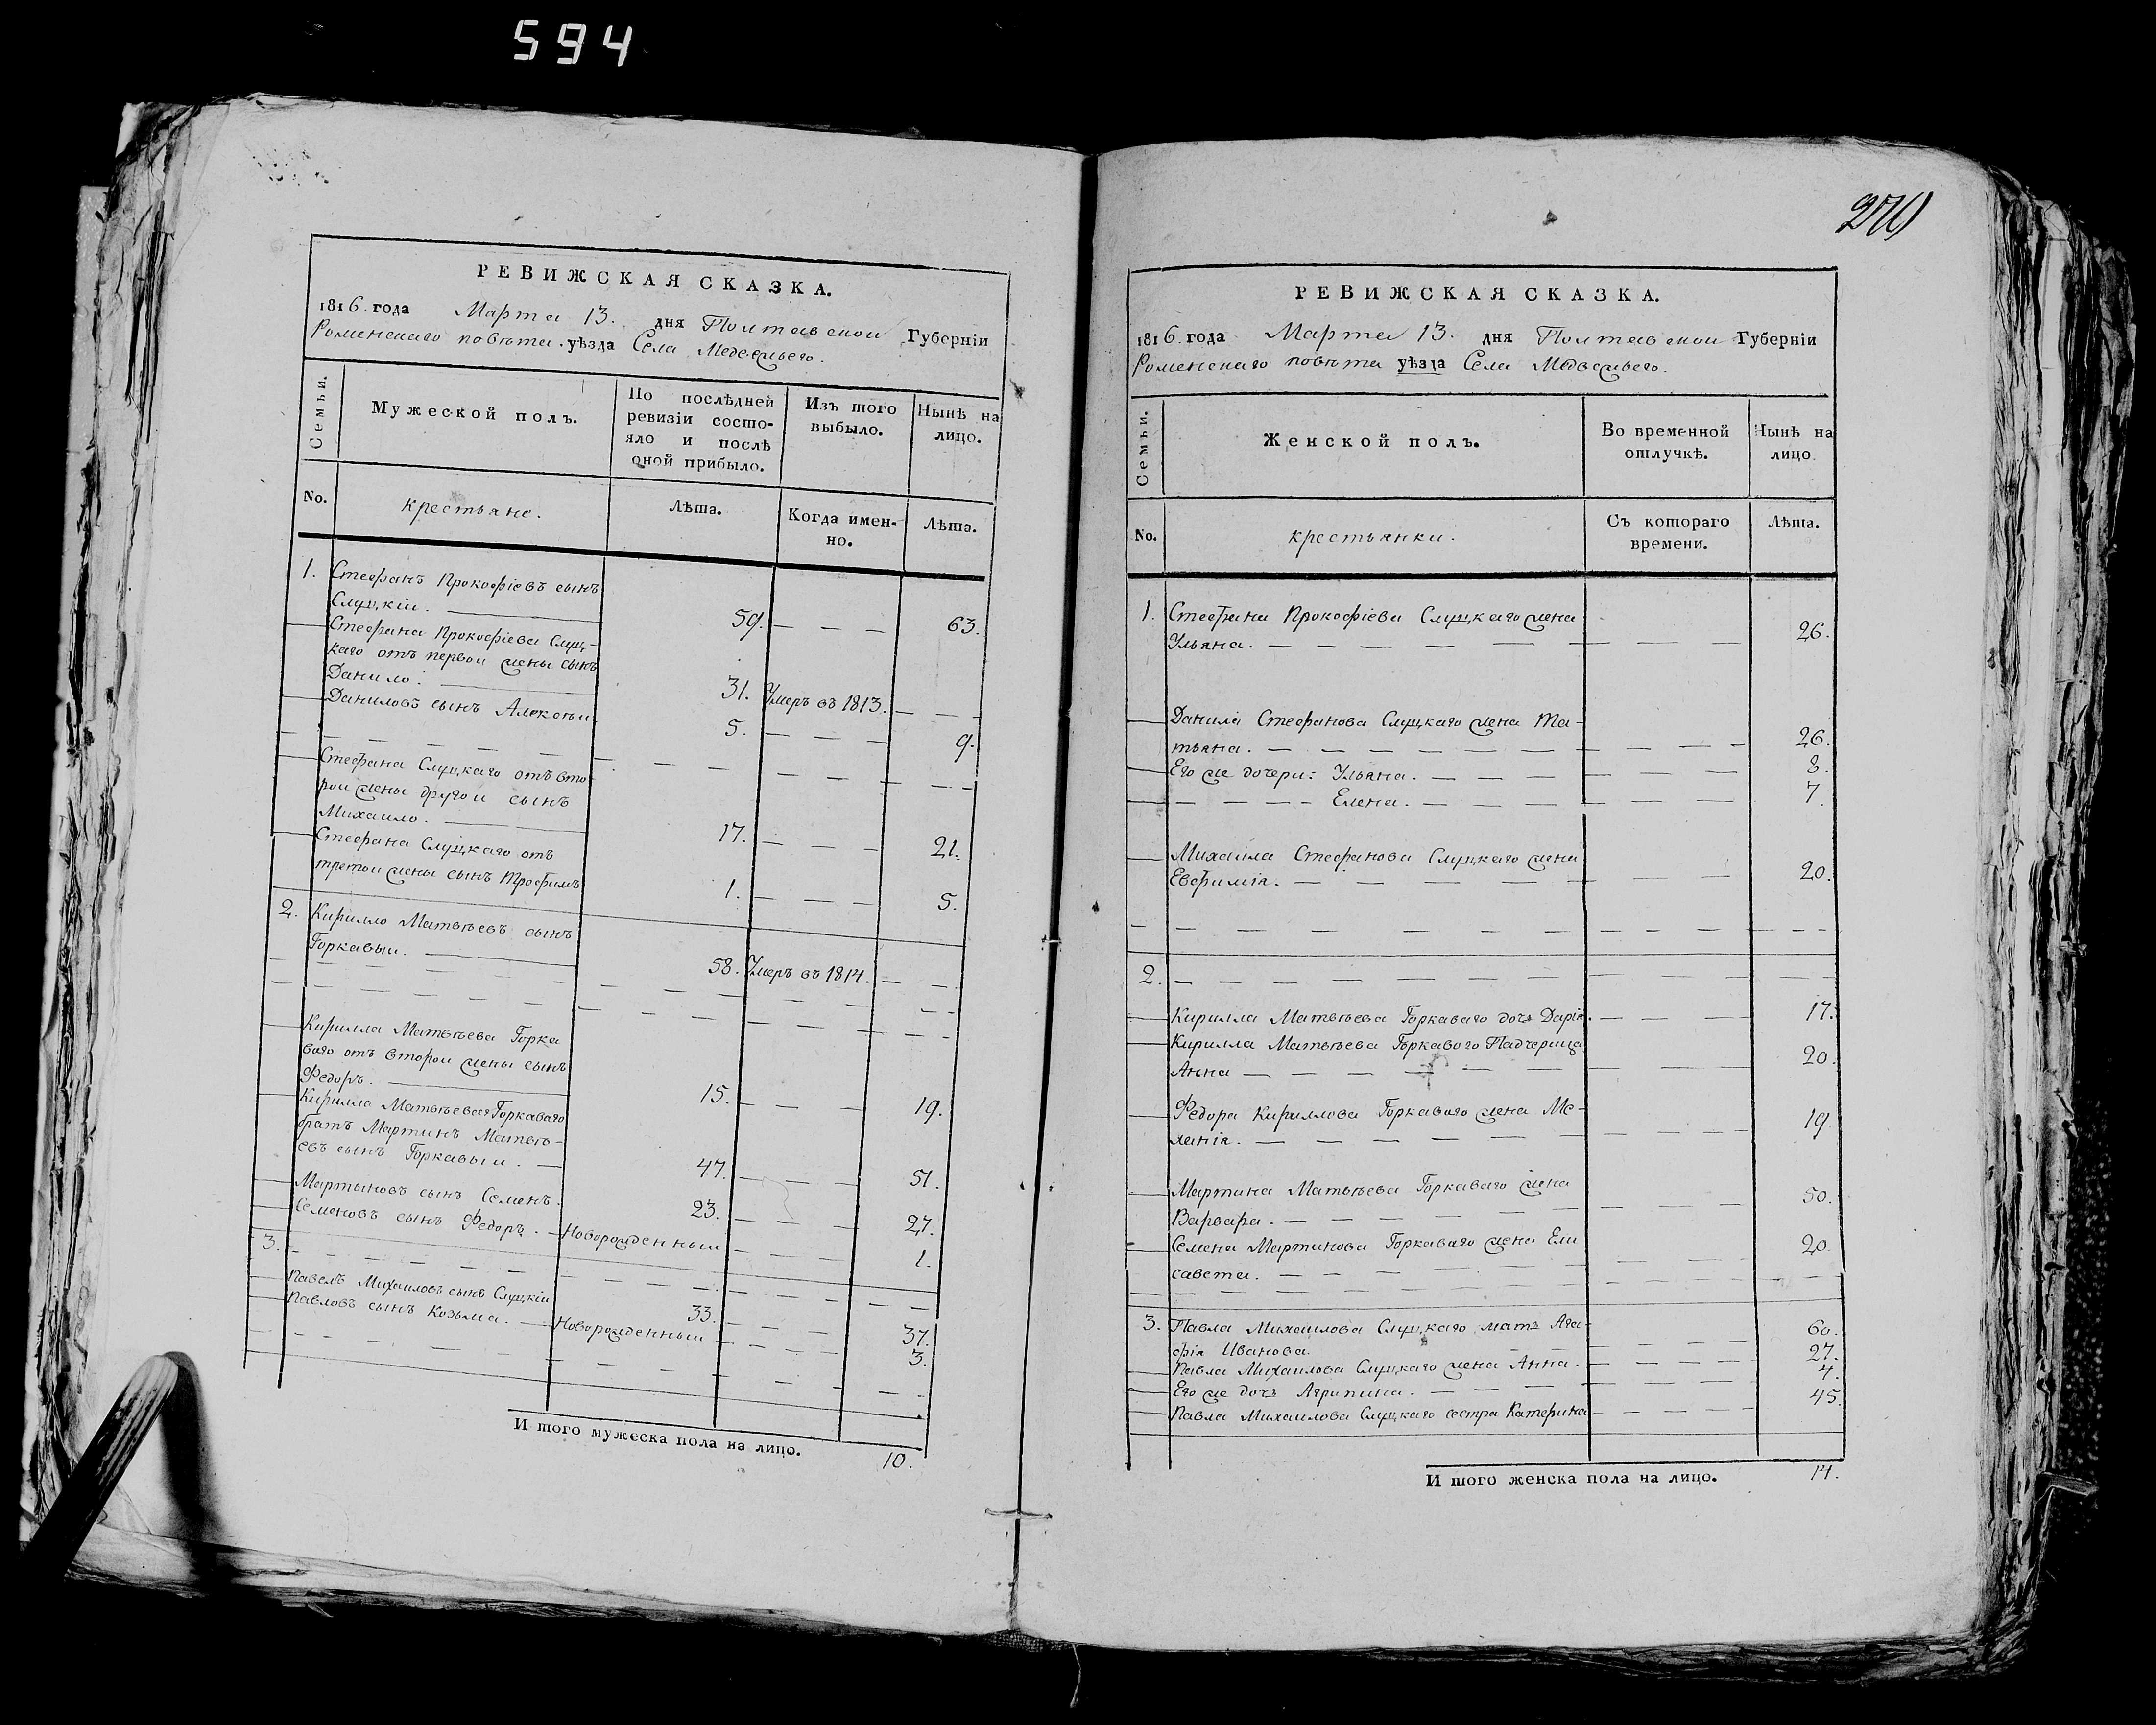 594
РЕВИЖСКАЯ СКАЗКА.
1816. года Марта 13. дня Полтавской Губернїи
Роменскаго повѣта. уѣзда Села Медвежьего.
Семьи.
Мужеской полъ.
По послѣдней
ревизїи состо-
яло и послѣ
оной прибыло.
Изъ того
выбыло.
Нынѣ на
лицо.
No.
крестьяне.
Лѣта.
Когда имен-
но.
Лѣта.
1. Стефанъ Прокофіевъ сынъ
Слуцкій. 59. 63.
Стефана Прокофіева Слуц-
каго отъ первой жены сынъ
Данило. 31. Умеръ въ 1813.
Даниловъ сынъ Алексѣй
5. 9.
Стефана Слуцкаго отъ вто
рой жены другой сынъ
Михайло. 17. 21.
Стефана Слуцкаго отъ
третой жены сынъ Трофимъ
1. 5.
2. Кирилло Матвѣевъ сынъ
Горкавый. 58. Умеръ въ 1814.
Кирилла Матвѣева Горка
ваго отъ второй жены сынъ
Федоръ. 15. 19.
Кирилла Матвѣева Горкаваго
братъ Мартинъ Матвѣ-
евъ сынъ Горкавый. 47. 51.
Мартыновъ сынъ Семенъ. 23. 27.
Семеновъ сынъ Федоръ. Новорожденный 1.
3.
Павелъ Михайловъ сынъ Слуцкій 33. 37.
Павловъ сынъ Козьма. Новорожденный 3.
И того мужеска пола на лицо. 10.
РЕВИЖСКАЯ СКАЗКА.
1816. года Марта 13. дня Полтавской Губернїи
Роменскаго повѣта уѣзда Села Медвежьего.
Семьи.
Женской полъ.
Во временной
отлучкѣ.
Нынѣ на
лицо
No.
крестьянки.
Съ котораго
времени.
Лѣта.
1. Стефана Прокофіева Слуцкаго жена
Ульяна. 26.
Данила Стефанова Слуцкаго жена Та-
тьяна. 26.
Его же дочери: Ульяна. 8.
Елена. 7.
Михайла Стефанова Слуцкаго жена
Евфимія. 20.
2.
Кирилла Матвѣева Горкаваго дочь Дарія. 17.
Кирилла Матвѣева Горкаваго Падчерица
Анна 20.
Федора Кириллова Горкаваго жена Ме-
ланія. 19.
Мартина Матвѣева Горкаваго жена
Варвара. 50.
Семена Мартинова Горкаваго жена Ели
савета. 20.
3. Павла Михайлова Слуцкаго мать Ага-
фія Иванова. 60.
Павла Михайлова Слуцкаго жена Анна. 27.
Его же дочь Агрипина. 4.
Павла Михайлова Слуцкаго сестра Катерина 45.
И того женска пола на лицо. 14.